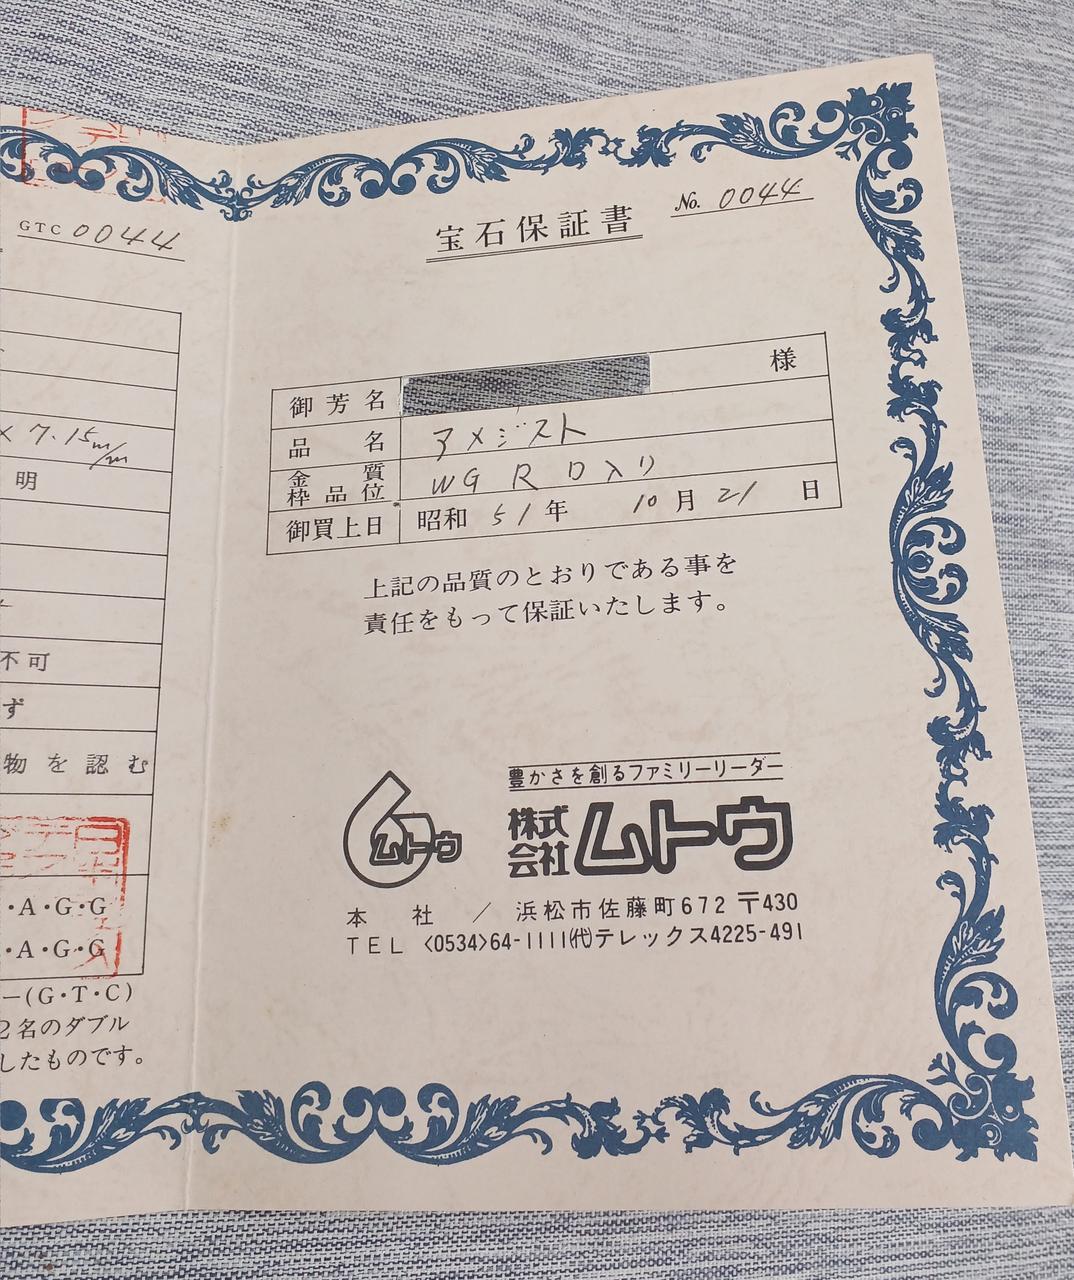 GTC 0044
× 7.15m/m
明
不可
ず
物を認む
・A・G・G
・A・G・G
ー(G・T・C)
2名のダブル
したものです。
宝石保証書
No. 0044
御芳名 様
品名 アメジスト
金質
枠品位 WG R D入り
御買上日 昭和 51年 10月 21日
上記の品質のとおりである事を
責任をもって保証いたします。
ムトウ
豊かさを創るファミリーリーダー
株式会社ムトウ
本社/浜松市佐藤町672 〒430
TEL <0534>64-1111(代)テレックス4225-491